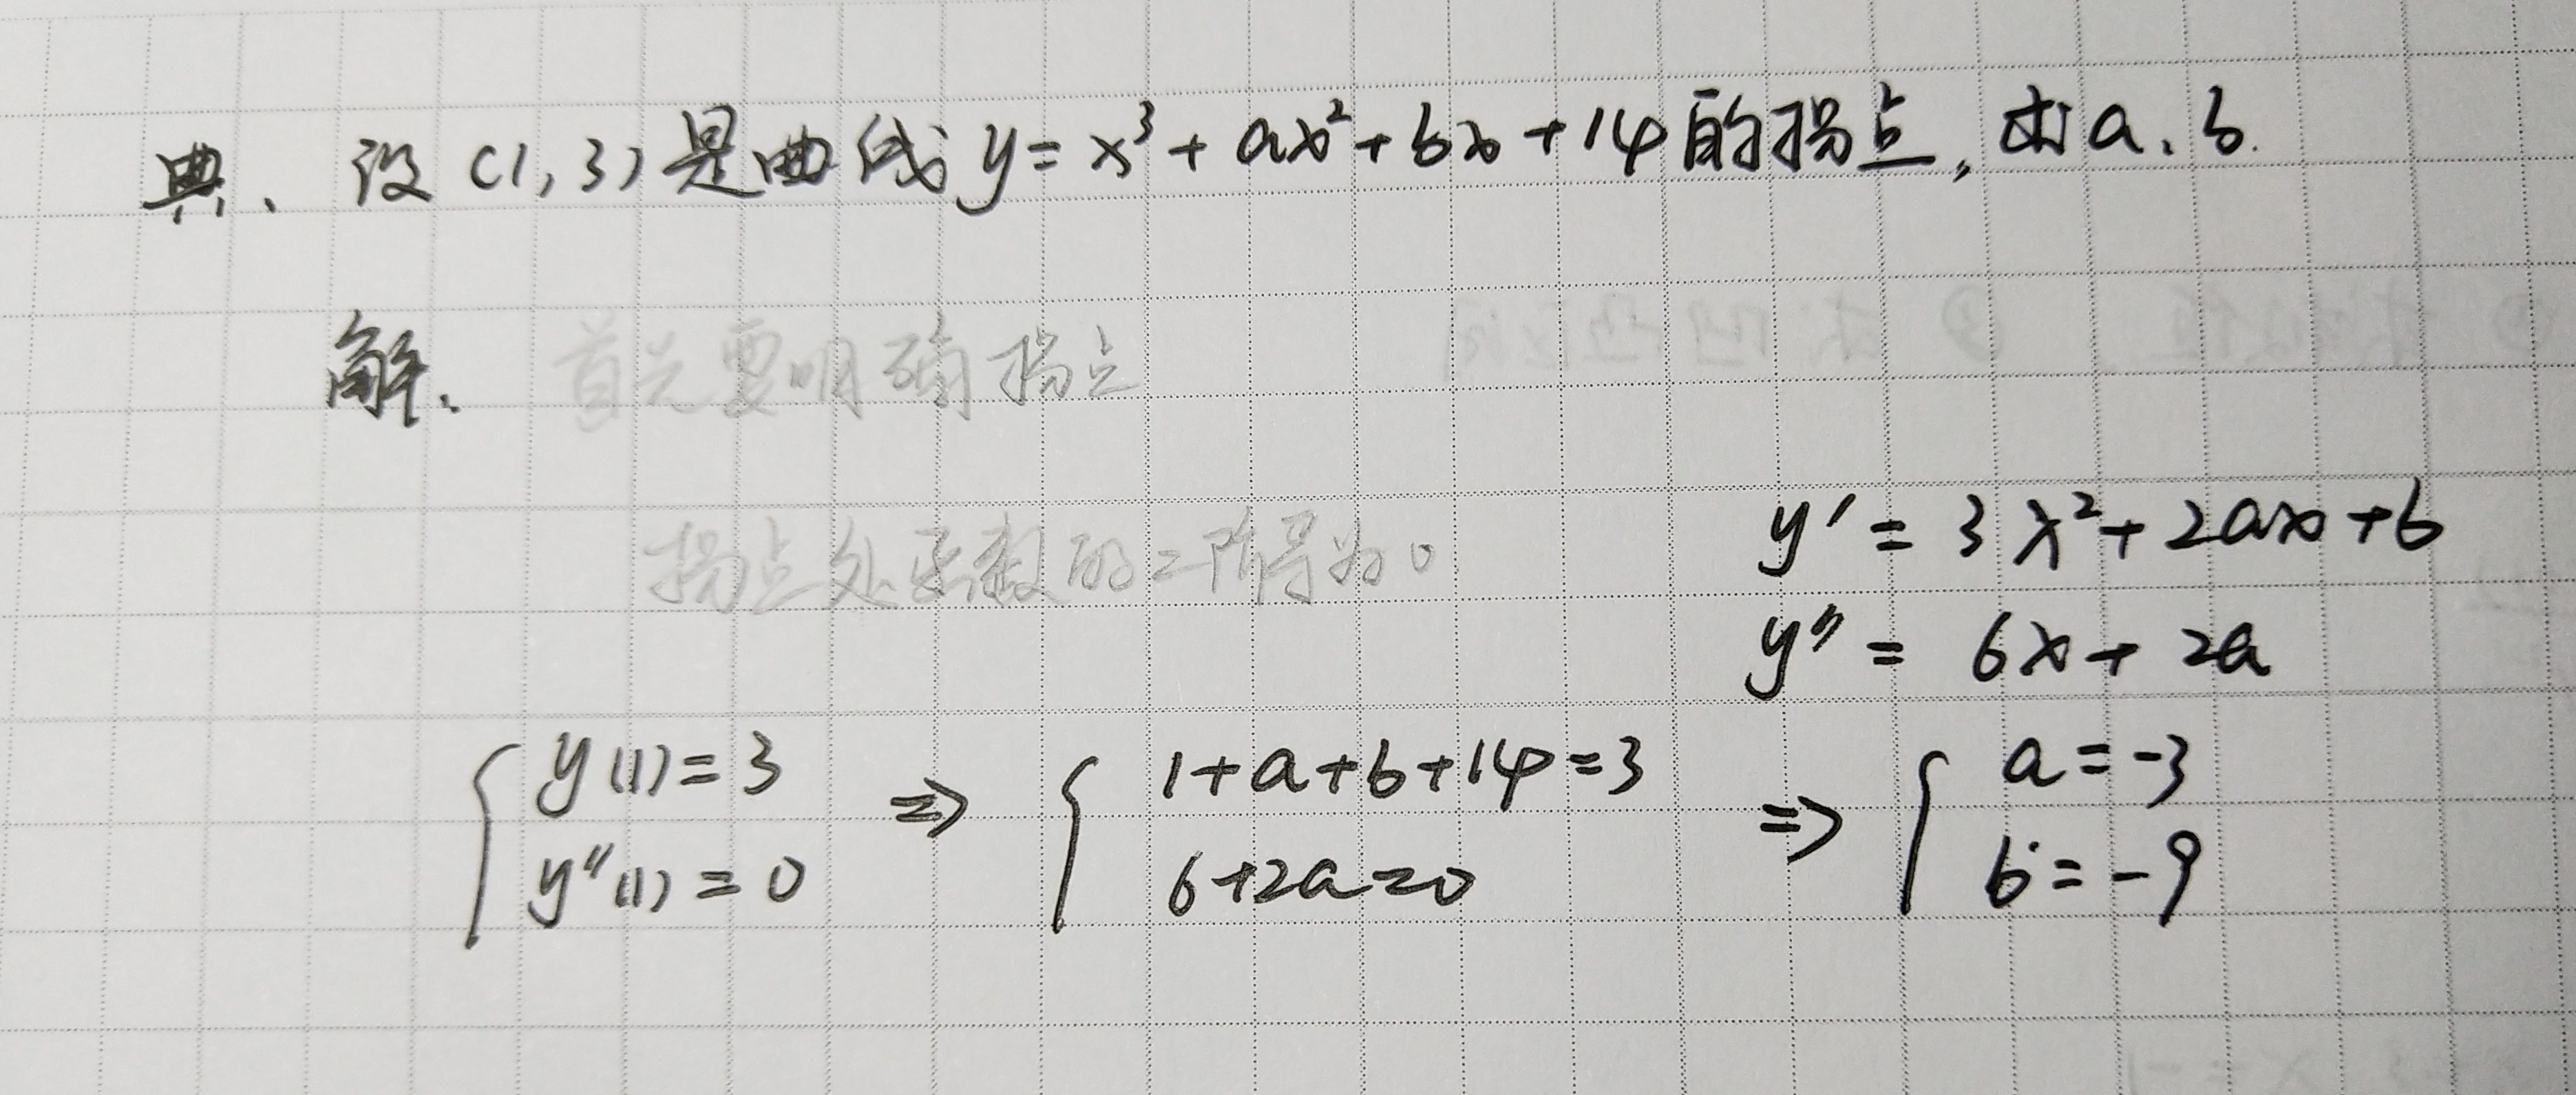 典、设(1,3)是曲线y=x³+ax²+bx+14的拐点,求a、b.
解. 首先要明确拐点
拐点处函数的二阶导为0
y′=3x²+2ax+b
y″=6x+2a
{ y(1)=3 ⇒ { 1+a+b+14=3 ⇒ { a=-3
y″(1)=0 6+2a=0 b=-9